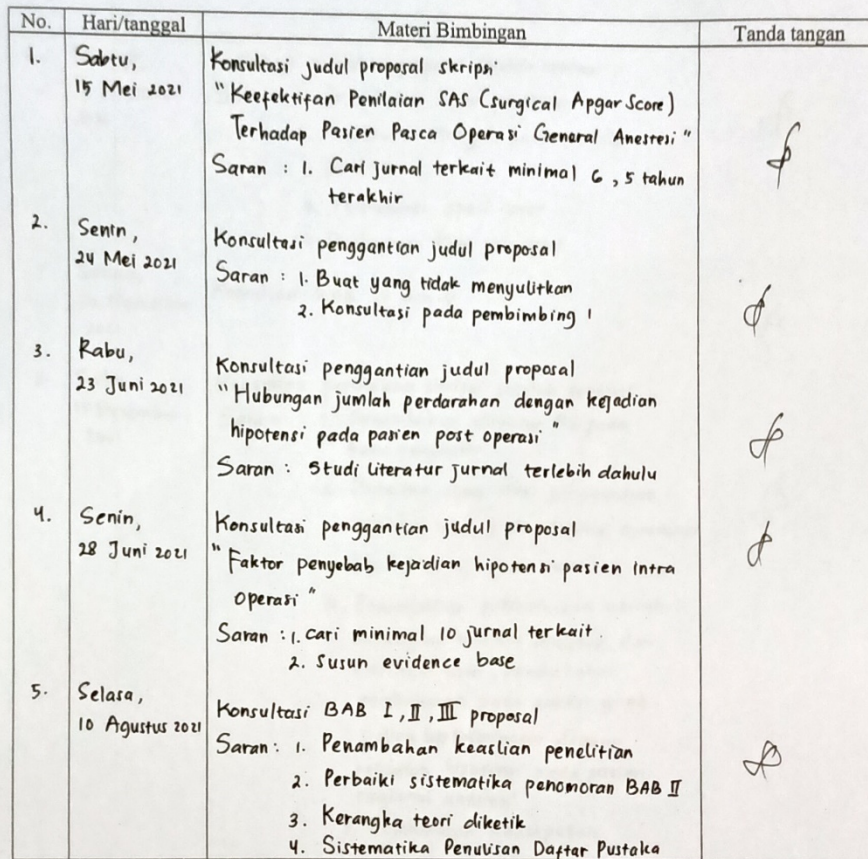 No. Hari/tanggal Materi Bimbingan Tanda tangan
1. Sabtu, Konsultasi judul proposal skripsi
15 Mei 2021 "Keefektifan Penilaian SAS (Surgical Apgar Score)
Terhadap Pasien Pasca Operasi General Anestesi"
Saran : 1. Cari jurnal terkait minimal 6, 5 tahun
terakhir
2. Senin, Konsultasi penggantian judul proposal
24 Mei 2021 Saran : 1. Buat yang tidak menyulitkan
2. Konsultasi pada pembimbing 1
3. Rabu, Konsultasi penggantian judul proposal
23 Juni 2021 "Hubungan jumlah perdarahan dengan kejadian
hipotensi pada pasien post operasi"
Saran : Studi literatur jurnal terlebih dahulu
4. Senin, Konsultasi penggantian judul proposal
28 Juni 2021 "Faktor penyebab kejadian hipotensi pasien intra
operasi"
Saran : 1. cari minimal 10 jurnal terkait.
2. Susun evidence base
5. Selasa, Konsultasi BAB I, II, III proposal
10 Agustus 2021 Saran : 1. Penambahan keaslian penelitian
2. Perbaiki sistematika penomoran BAB II
3. Kerangka teori diketik
4. Sistematika Penulisan Daftar Pustaka